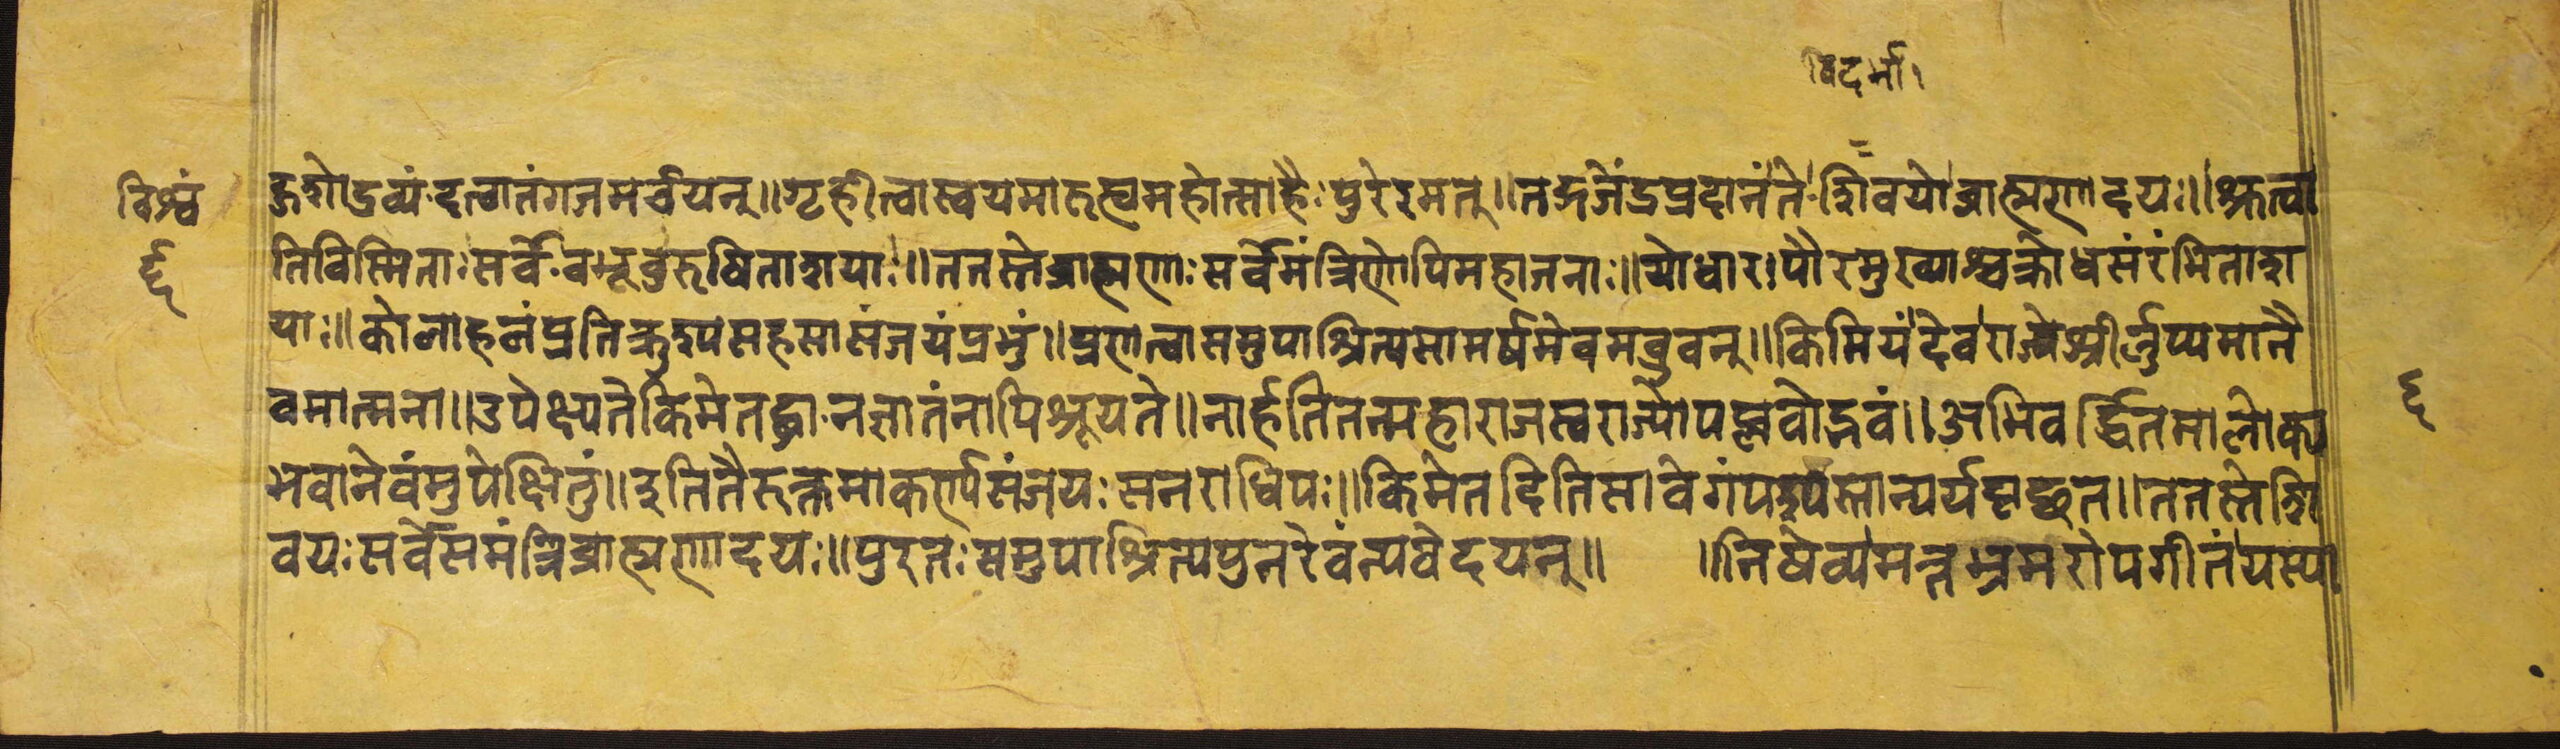 विदर्भा।
विश्वं
हुशो द्रव्यं दत्वा तं गजमर्चयन्॥ गृहीत्वा स्वयमारुह्य महोत्साहैः पुरेरमत्॥ तद्गजेंद्रप्रदानं ते शिवयो ब्राह्मणादयः॥ श्रुत्वा
तिविस्मिताः सर्वे बभूवु रुषिताशयाः॥ ततस्ते ब्राह्मणाः सर्वे मंत्रिणोपि महाजनाः॥ योधाराः पौरमुख्याश्च क्रोधसंरंभिताश
याः॥ कोलाहलं प्रतिक्रुश्य सहसा संजयं प्रभुं॥ प्रणत्वा समुपाश्रित्य सामर्षमेवमब्रुवन्॥ किमियं देव राज्यश्रीर्लुप्यमानै
वमात्मना॥ उपेक्ष्यते किमेतद्धा न ज्ञातं नापि श्रूयते॥ नार्हति तन्महाराज स्वराज्योपप्लवोद्भवं॥ अभिवर्द्धितमालोक्य
भवानेवंमुपेक्षितुं॥ इति तैरुक्तमाकर्ण्य संजयः स नराधिपः॥ किमेतदिति सावेगं पश्यंस्तान्पर्यपृच्छत॥ ततस्ते शि
वयः सर्वे समंत्रिब्राह्मणादयः॥ पुरतः समुपाश्रित्य पुनरेवं न्यवेदयन्॥ ॥ निषेव्य मत्तभ्रमरोपगीतं यस्या
६
६